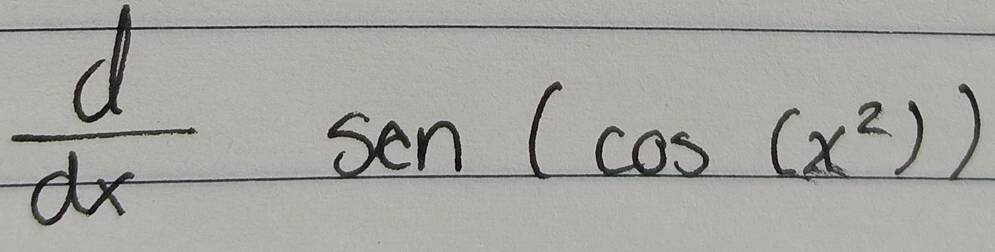 d/dx sen (cos (x²))